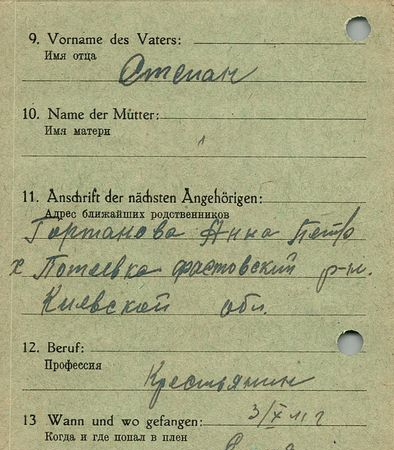 9. Vorname des Vaters:
Имя отца
Степан
10. Name der Mutter:
Имя матери
11. Anschrift der nächsten Angehörigen:
Адрес ближайших родственников
Анна Петр
х Потеевка фастовский р-н.
Киевской обл.
12. Beruf:
Профессия
Крестьянин
13 Wann und wo gefangen:
3/X 41 г
Когда и где попал в плен